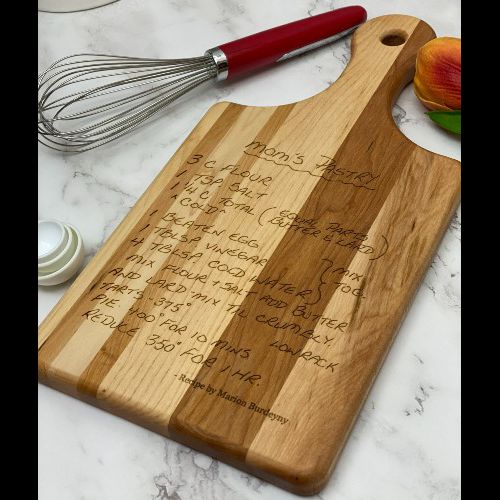 MOM'S PASTRY
3 C FLOUR
1 TSP SALT
1 1/4 C TOTAL (EQUAL PARTS
"COLD" BUTTER & LARD)
1 BEATEN EGG
1 TBLSP VINEGAR } MIX
4 TBLSP COLD WATER } TOG.
MIX FLOUR + SALT ADD BUTTER
AND LARD - MIX TIL CRUMBLY.
TARTS - 375° LOW RACK
PIE 400° FOR 10 MINS
REDUCE 350° FOR 1 HR.
- Recipe by Marion Burdeyny